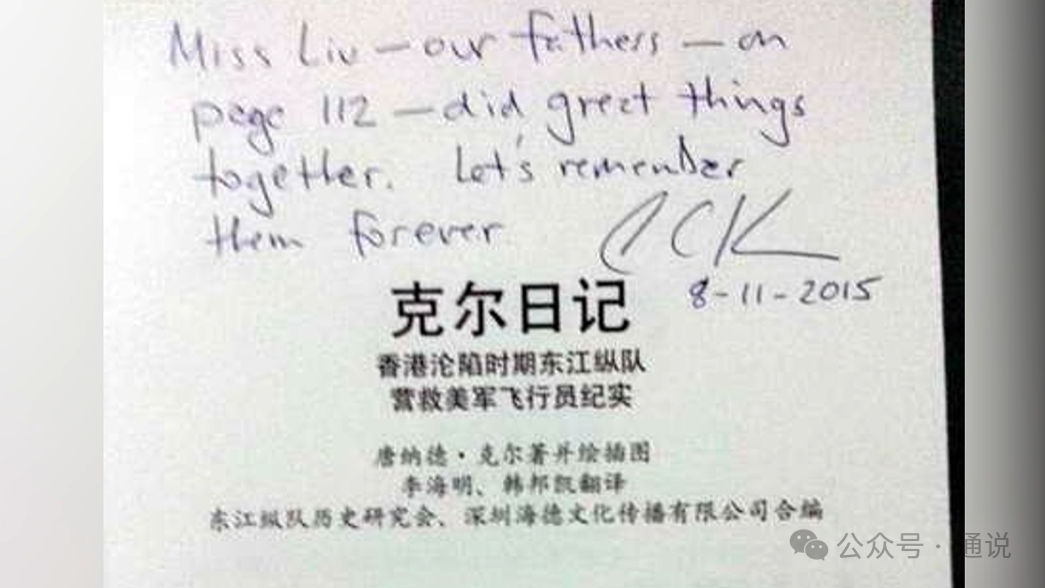 Miss Liu — our fathers — on
page 112 — did great things
together. Let's remember
them forever
8-11-2015
克尔日记
香港沦陷时期东江纵队
营救美军飞行员纪实
唐纳德·克尔著并绘插图
李海明、韩邦凯翻译
东江纵队历史研究会、深圳海德文化传播有限公司合编
公众号·通说